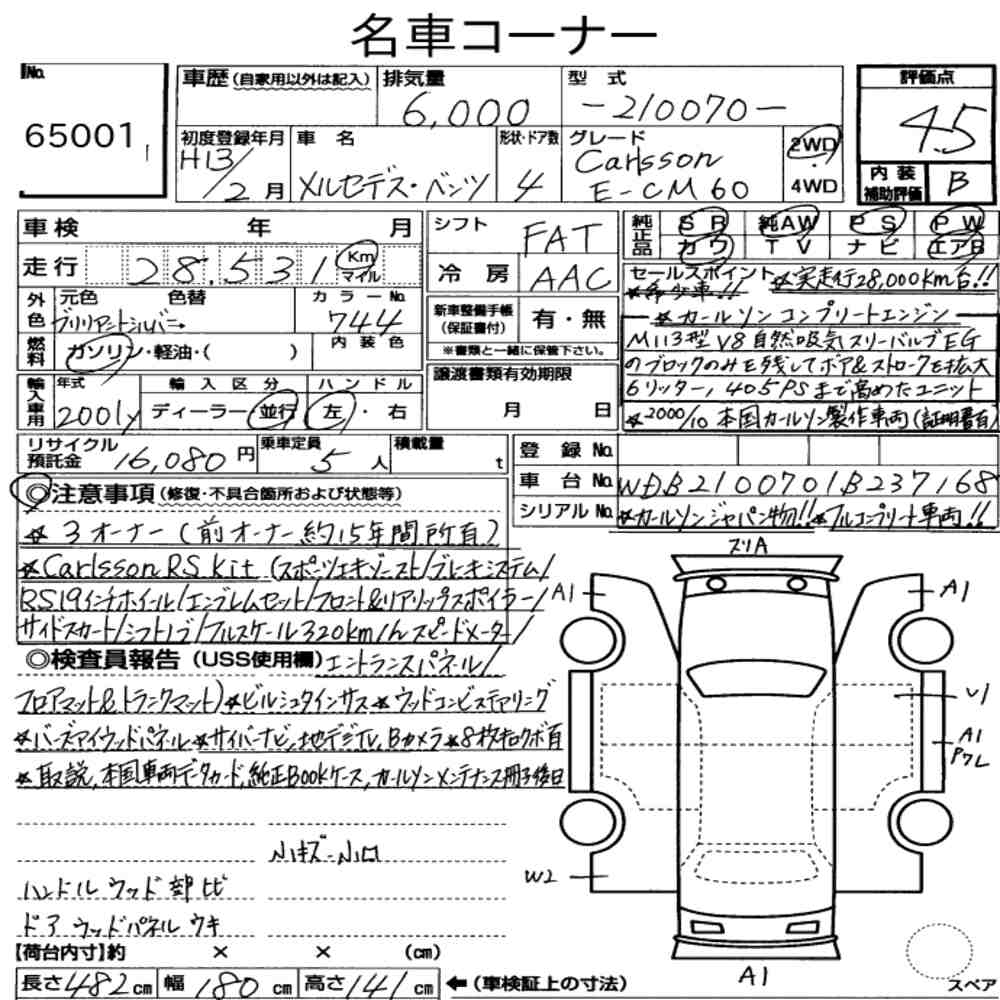 名車コーナー
No. 65001
車歴 (自家用以外は記入)
排気量 6,000
型式 -210070-
評価点 4.5
初度登録年月 H13/2月
車名 メルセデス・ベンツ
形状・ドア数 4
グレード Carlsson E-CM60
2WD・4WD
内装補助評価 B
車検 年 月
シフト FAT
純正品 SR 純AW PS PW
カワ TV ナビ エアB
走行 28,531 Km マイル
冷房 AAC
セールスポイント ★実走行28,000km台!!
★希少車!!
外色 元色 色替 カラーNo.
ブリリアントシルバー 744
新車整備手帳(保証書付) 有・無
★カールソンコンプリートエンジン
燃料 ガソリン・軽油・( ) 内装色
※書類と一緒に保管下さい。
M113型V8自然吸気スリーバルブEG
のブロックのみを残してボア&ストロークを拡大
輸入車用 年式 輸入区分 ハンドル
2001y ディーラー・並行 左・右
譲渡書類有効期限
月 日
6リッター,405PSまで高めたユニット
★2000/10 本国カールソン製作車両(証明書有)
リサイクル預託金 16,080円
乗車定員 5人
積載量 t
登録No.
車台No. WDB2100701B237168
シリアルNo. ★カールソンジャパン物!! ★フルコンプリート車両!!
◎注意事項(修復・不具合箇所および状態等)
★3オーナー(前オーナー約15年間所有)
★Carlsson RS kit (スポーツエキゾースト/ブレーキシステム/
RS19インチホイール/エンブレムセット/フロント&リアリップスポイラー/
サイドスカート/シフトノブ/フルスケール320km/hスピードメーター/
◎検査員報告(USS使用欄)エントランスパネル/
フロアマット&トランクマット)★ビルシュタインサス★ウッドコンビステアリング
★バーズアイウッドパネル★サイバーナビ,地デジTV,Bカメラ★8枚キロクボ有
★取説,本国車両データカード,純正BOOKケース,カールソンメンテナンス冊子後日
小キズ・小凹
ハンドルウッド部ヒビ
ドアウッドパネルウキ
【荷台内寸】約 × × (cm)
長さ482cm 幅180cm 高さ141cm ←(車検証上の寸法)
スリA
A1
A1
U1
A1
PWL
W2
A1
スペア